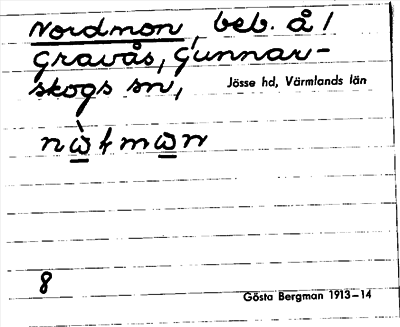 Nordmon, beb. å /
Gravås, Gunnar-
skogs sn,
Jösse hd, Värmlands län
8
Gösta Bergman 1913–14